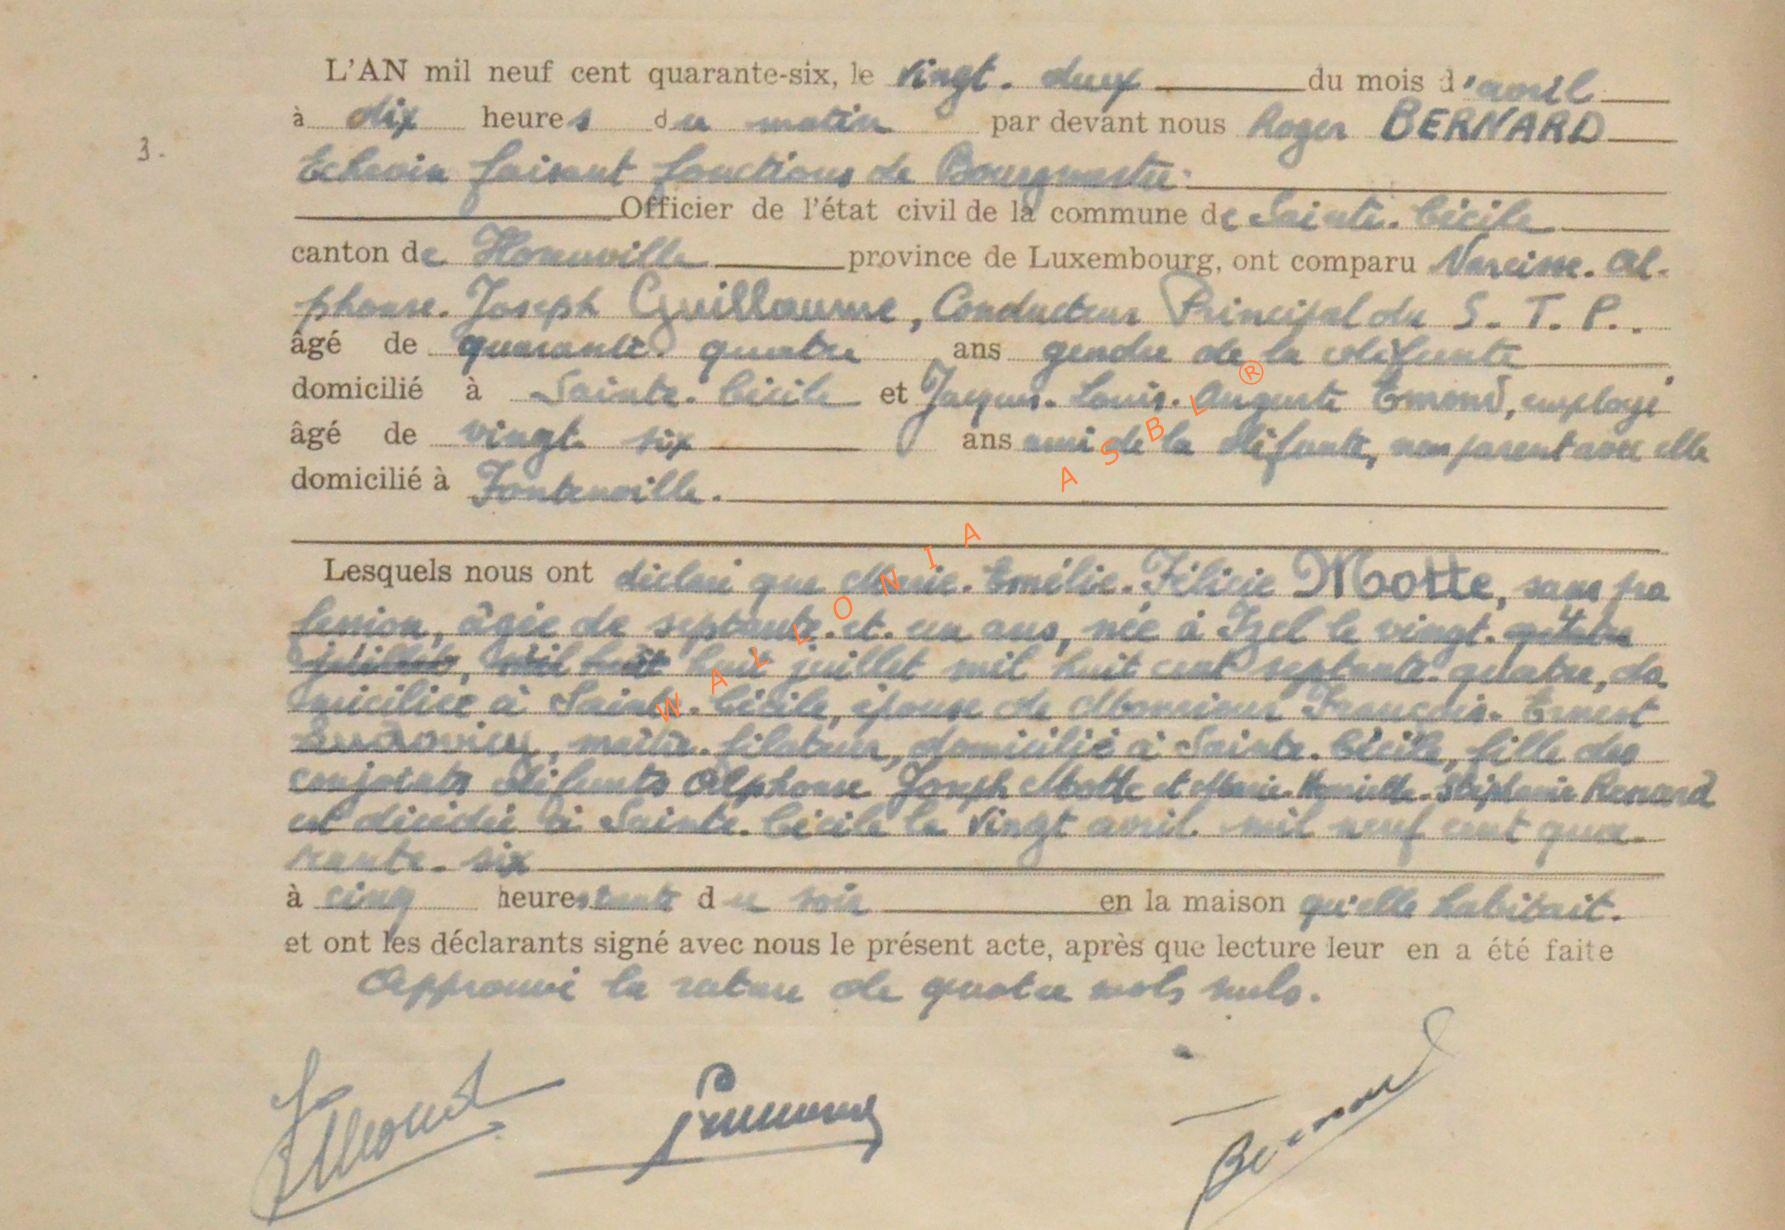 L'AN mil neuf cent quarante-six, le vingt. deux du mois d'avril
à dix heures du matin par devant nous Roger BERNARD
3.
Echevin faisant fonctions de Bourgmestre.
Officier de l'état civil de la commune de Sainte. Cécile
canton de Florenville province de Luxembourg, ont comparu Narcisse. Al-
phonse. Joseph Guillaume, Conducteur Principal du S. T. P..
âgé de quarante. quatre ans gendre de la défunte
domicilié à Sainte. Cécile et Jacques. Louis. Auguste Emond, employé
âgé de vingt. six ans ami de la défunte, non parent avec elle
domicilié à Fontenoille.
Lesquels nous ont déclaré que Marie. Emélie. Félicie Motte, sans pro
fession, âgée de septante. et. un ans, née à Izel le vingt. quatre
juillet, mil huit huit juillet mil huit cent septante. quatre, do.
miciliée à Sainte. Cécile, épouse de Monsieur François. Ernest
Ludovicy, maître. filateur, domicilié à Sainte. Cécile, fille des
conjoints défunts Alphonse. Joseph Motte et Marie. Henriette. Stéphanie Renard
est décédée à Sainte. Cécile le vingt avril. mil neuf cent qua-
rante. six
à cinq heures trente du soir en la maison qu'elle habitait.
et ont les déclarants signé avec nous le présent acte, après que lecture leur en a été faite
Approuvé la rature de quatre mots nuls.
JEmond Bernard
WALLONIA ASBL ®